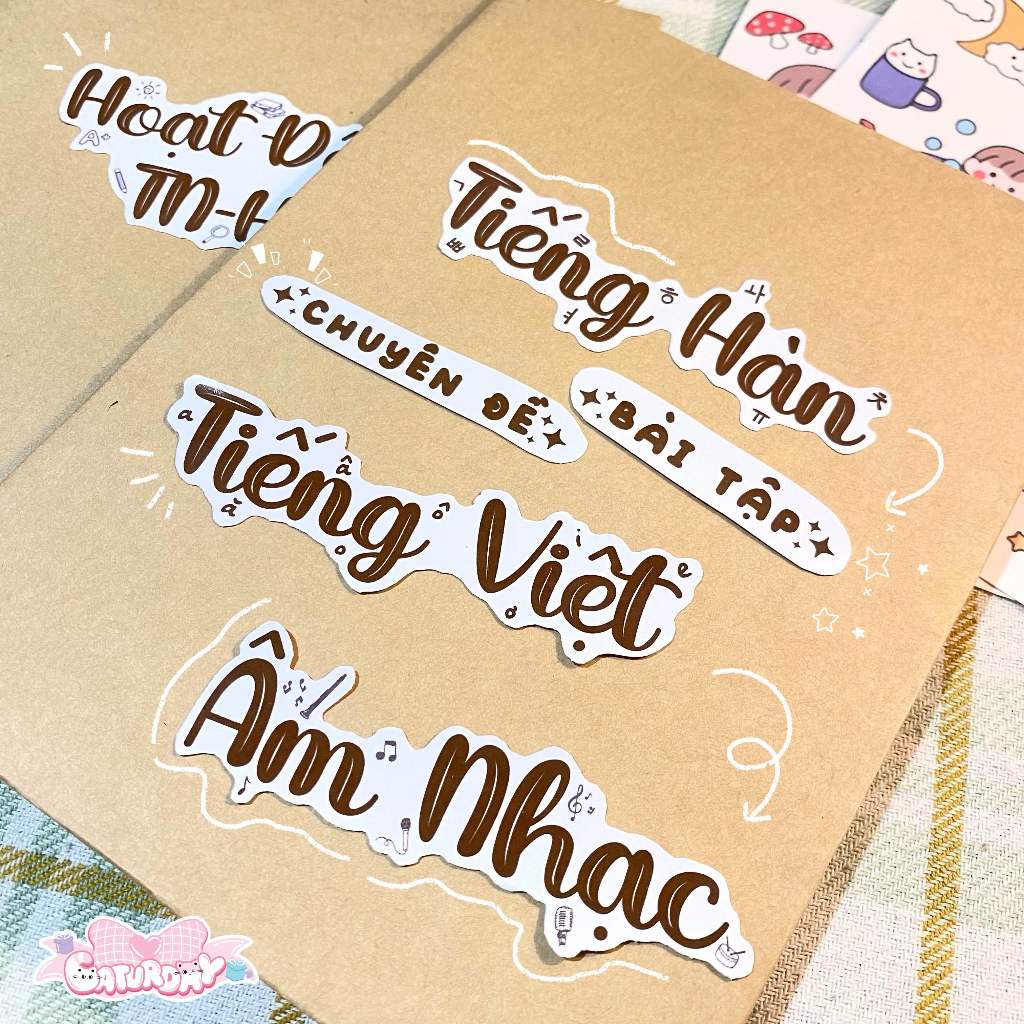 Hoạt Đ
TN-H
A
Tiếng Hàn
ㄱ ㄹ ㅃ ㅕ ㅎ 사 ㅠ ㅊ
CHUYÊN ĐỀ
BÀI TẬP
Tiếng Việt
a ă â ô o ơ i e
Âm Nhạc
CATURDAY